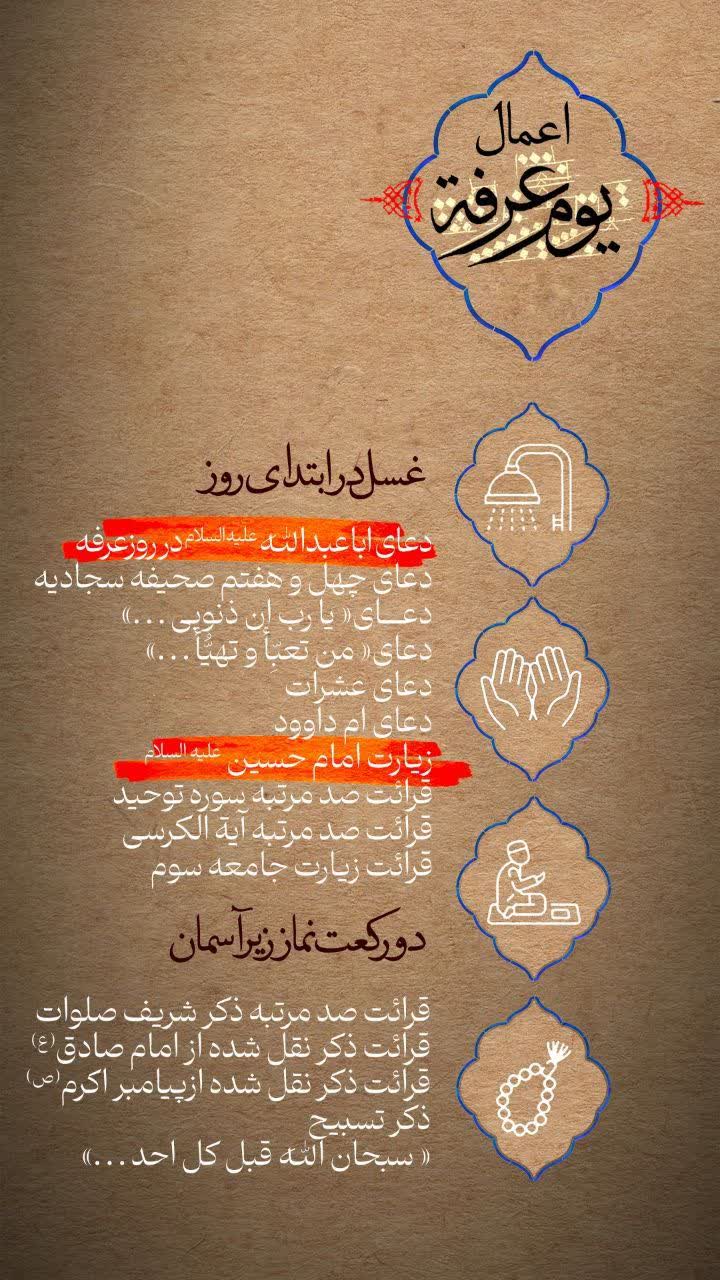 اعمال
یوم عرفة
غسل در ابتدای روز
دعای اباعبدالله علیه‌السلام در روز عرفه
دعای چهل و هفتم صحیفه سجادیه
دعـــای« یا رب إن ذنوبی ...»
دعای« من تعبّأ و تهیّأ...»
دعای عشرات
دعای ام داوود
زیارت امام حسین علیه السلام
قرائت صد مرتبه سوره توحید
قرائت صد مرتبه آیة الکرسی
قرائت زیارت جامعه سوم
دو رکعت نماز زیر آسمان
قرائت صد مرتبه ذکر شریف صلوات
قرائت ذکر نقل شده از امام صادق(ع)
قرائت ذکر نقل شده ازپیامبر اکرم(ص)
ذکر تسبیح
« سبحان الله قبل کل احد...»